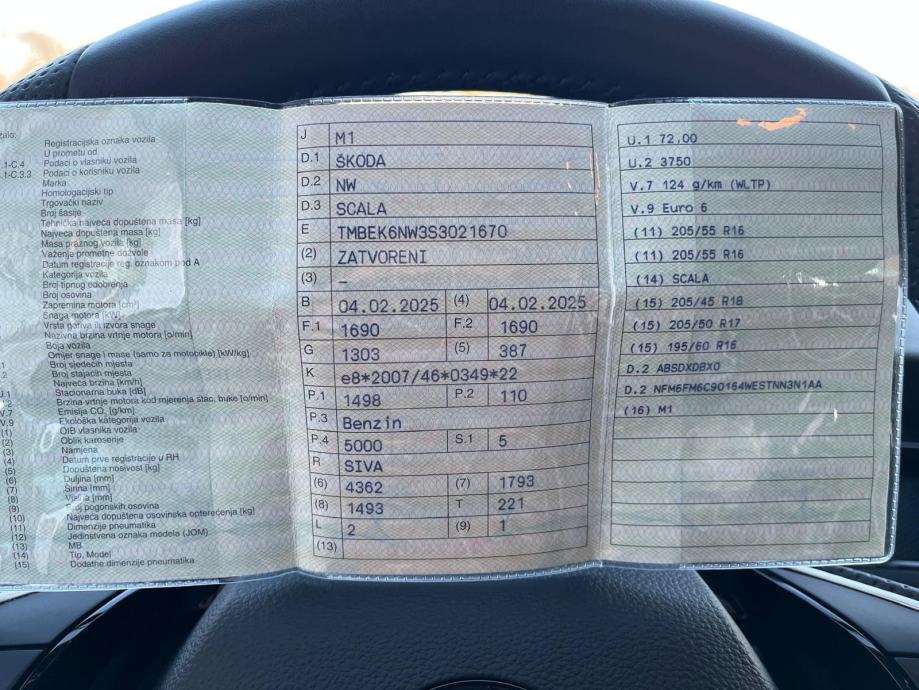 Registracijska oznaka vozila
U prometu od
.1-C.4 Podaci o vlasniku vozila
.1-C.3.3 Podaci o korisniku vozila
Marka
Homologacijski tip
Trgovački naziv
Broj šasije
Tehnička najveća dopuštena masa [kg]
Najveća dopuštena masa [kg]
Masa praznog vozila [kg]
Važenje prometne dozvole
Datum registracije reg. oznakom pod A
Kategorija vozila
Broj tipnog odobrenja
Broj osovina
Zapremina motora [cm³]
Snaga motora [kW]
Vrsta goriva ili izvora snage
Nazivna brzina vrtnje motora [o/min]
Boja vozila
Omjer snage i mase (samo za motocikle) [kW/kg]
Broj sjedećih mjesta
Broj stajaćih mjesta
Najveća brzina [km/h]
Stacionarna buka [dB]
Brzina vrtnje motora kod mjerenja stac. buke [o/min]
V.7 Emisija CO₂ [g/km]
V.9 Ekološka kategorija vozila
(1) OIB vlasnika vozila
(2) Oblik karoserije
(3) Namjena
(4) Datum prve registracije u RH
(5) Dopuštena nosivost [kg]
(6) Duljina [mm]
(7) Širina [mm]
(8) Visina [mm]
(9) Broj pogonskih osovina
(10) Najveća dopuštena osovinska opterećenja [kg]
(11) Dimenzije pneumatika
(12) Jedinstvena oznaka modela (JOM)
(13) MB
(14) Tip, Model
(15) Dodatne dimenzije pneumatika
J M1
D.1 ŠKODA
D.2 NW
D.3 SCALA
E TMBEK6NW3S3021670
(2) ZATVORENI
(3) –
B 04.02.2025 (4) 04.02.2025
F.1 1690 F.2 1690
G 1303 (5) 387
K e8*2007/46*0349*22
P.1 1498 P.2 110
P.3 Benzin
P.4 5000 S.1 5
R SIVA
(6) 4362 (7) 1793
(8) 1493 T 221
L 2 (9) 1
(13)
U.1 72,00
U.2 3750
V.7 124 g/km (WLTP)
V.9 Euro 6
(11) 205/55 R16
(11) 205/55 R16
(14) SCALA
(15) 205/45 R18
(15) 205/50 R17
(15) 195/60 R16
D.2 ABSDXDBX0
D.2 NFM6FM6C90164WESTNN3N1AA
(16) M1